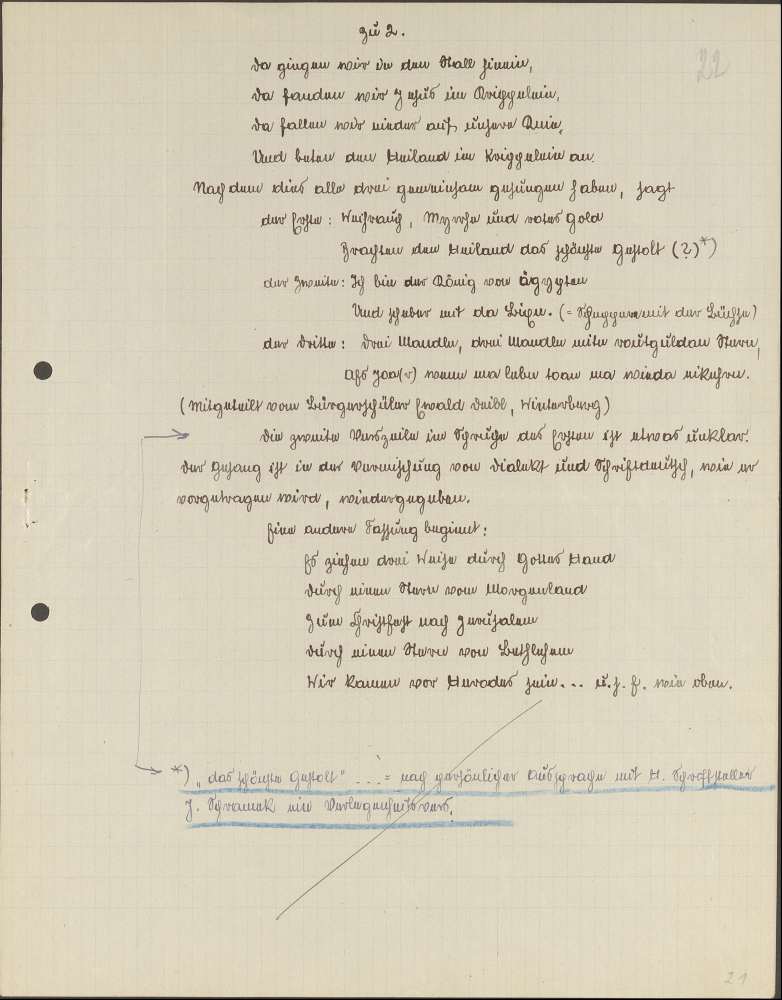 zu 2.
22
Da gingen wir in den Stall hinein,
Da fanden wir Jesus im Krippelein,
Da fallen wir nieder auf unsere Knie,
Und beten den Heiland im Krippelein an.
Nachdem dies alle drei gemeinsam gesungen haben, sagt
der Erste: Weihrauch, Myrrhe und rotes Gold
Brachten den Heiland das schönste Gestalt (?)*)
der Zweite: Ich bin der König von Ägypten
Und scheber mit da Bixn. (= Scheppere mit der Büchse)
der Dritte: Drei Mandln, drei Mandln mitn rautguldan Stern,
Afs Joa(r) wenn ma lebn toan ma wieda eikehrn.
(Mitgeteilt vom Bürgerschüler Ewald Deibl, Winterberg)
Die zweite Verszeile im Spruche des Ersten ist etwas unklar.
Der Gesang ist in der Vermischung von Dialekt und Schriftdeutsch, wie er
vorgetragen wird, wiedergegeben.
Eine andere Fassung beginnt:
Es ziehen drei Weise durch Gottes Hand
Durch einen Stern vom Morgenland
Zum Christfest nach Jerusalem
Durch einen Stern von Bethlehem
Wir kamen vor Herodes sein... u.s.f. wie oben.
*) „das schönste Gestalt" ... = nach persönlicher Aussprache mit H. Schriftsteller
J. Schramek ein Verlegenheitsvers.
21